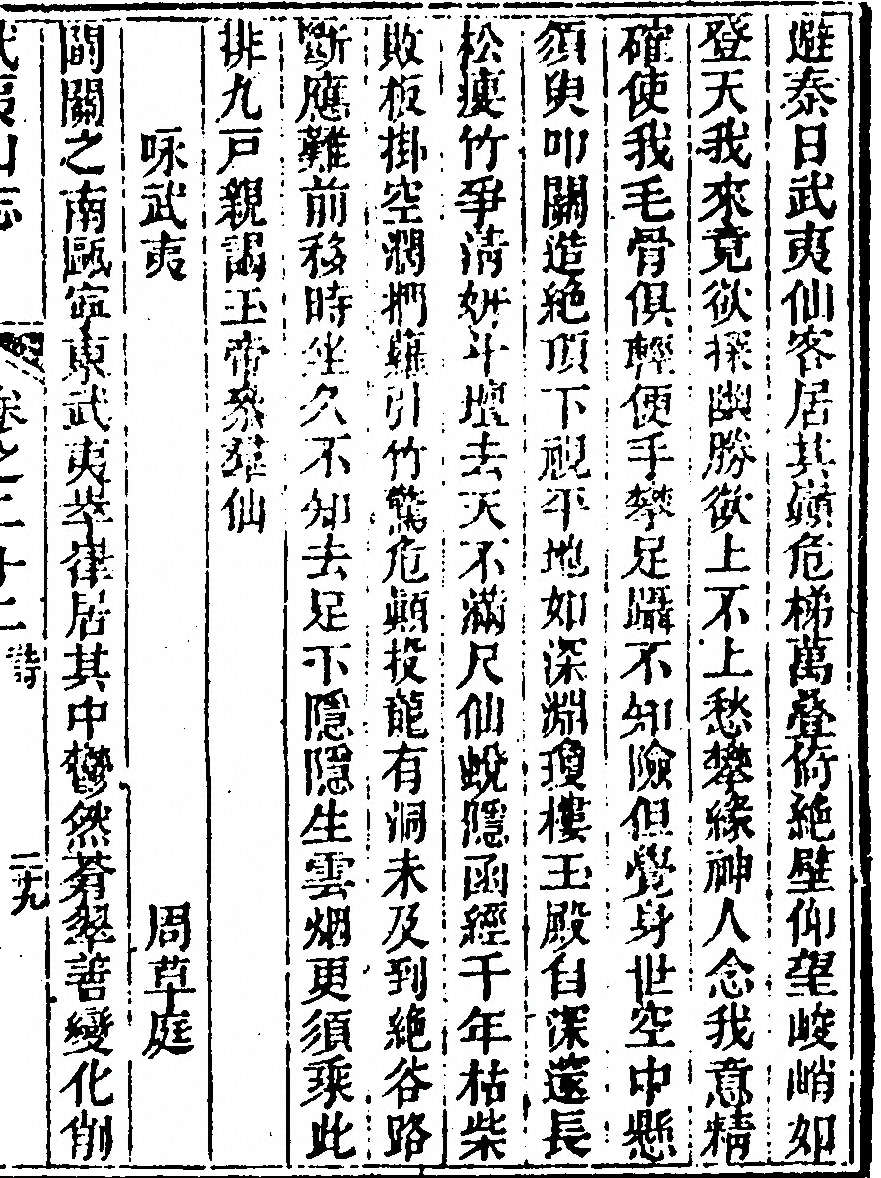 避秦日武夷仙客居其巔危梯萬疊倚絶壁仰望峻峭如
登天我來竟欲探幽勝欲上不上愁攀緣神人念我意精
確使我毛骨俱輕便手攀足躡不知險但覺身世空中懸
須臾叩關造絶頂下視平地如深淵瓊樓玉殿自深邃長
松瘦竹爭清妍斗壇去天不滿尺仙蛻隱函經千年枯柴
敗板掛空澗捫蘿引竹驚危顛投龍有洞未及到絶谷路
斷應難前移時坐久不知去足下隱隱生雲烟更須乘此
排九戸親謁玉帝參羣仙
咏武夷
周草庭
閩關之南甌寧東武夷崒嵂居其中鬱然蒼翠善變化削
武夷山志
卷之二十二
詩
二十九